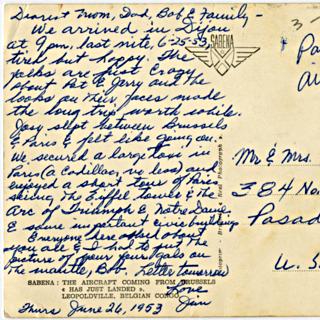 Dearest Mom, Dad, Bob & Family -
We arrived in Dijon
at 9 pm. last nite, 6-25-53,
tired but happy. The
folks are just crazy
about Pat & Gerry and the
looks on their faces made
the long trip worth while.
Joey slept between Brussels
& Paris & felt like going on.
We secured a large taxi in
Paris (a Cadillac, no less) and
enjoyed a short tour of Paris
seeing the Eiffel tower & the
Arc of Triumph & Notre Dame
& some important civic buildings
Everyone here asked about
you all & I had to put the
picture of your four gals on
the mantle, Bob. Letter tomorrow
Love
Jim
Thurs June 26, 1953
SABENA
SABENA : THE AIRCRAFT COMING FROM BRUSSELS
« HAS JUST LANDED ».
LEOPOLDVILLE, BELGIAN CONGO.
Pa
Air
Mr & Mrs
384 No
Pasad
U. S.